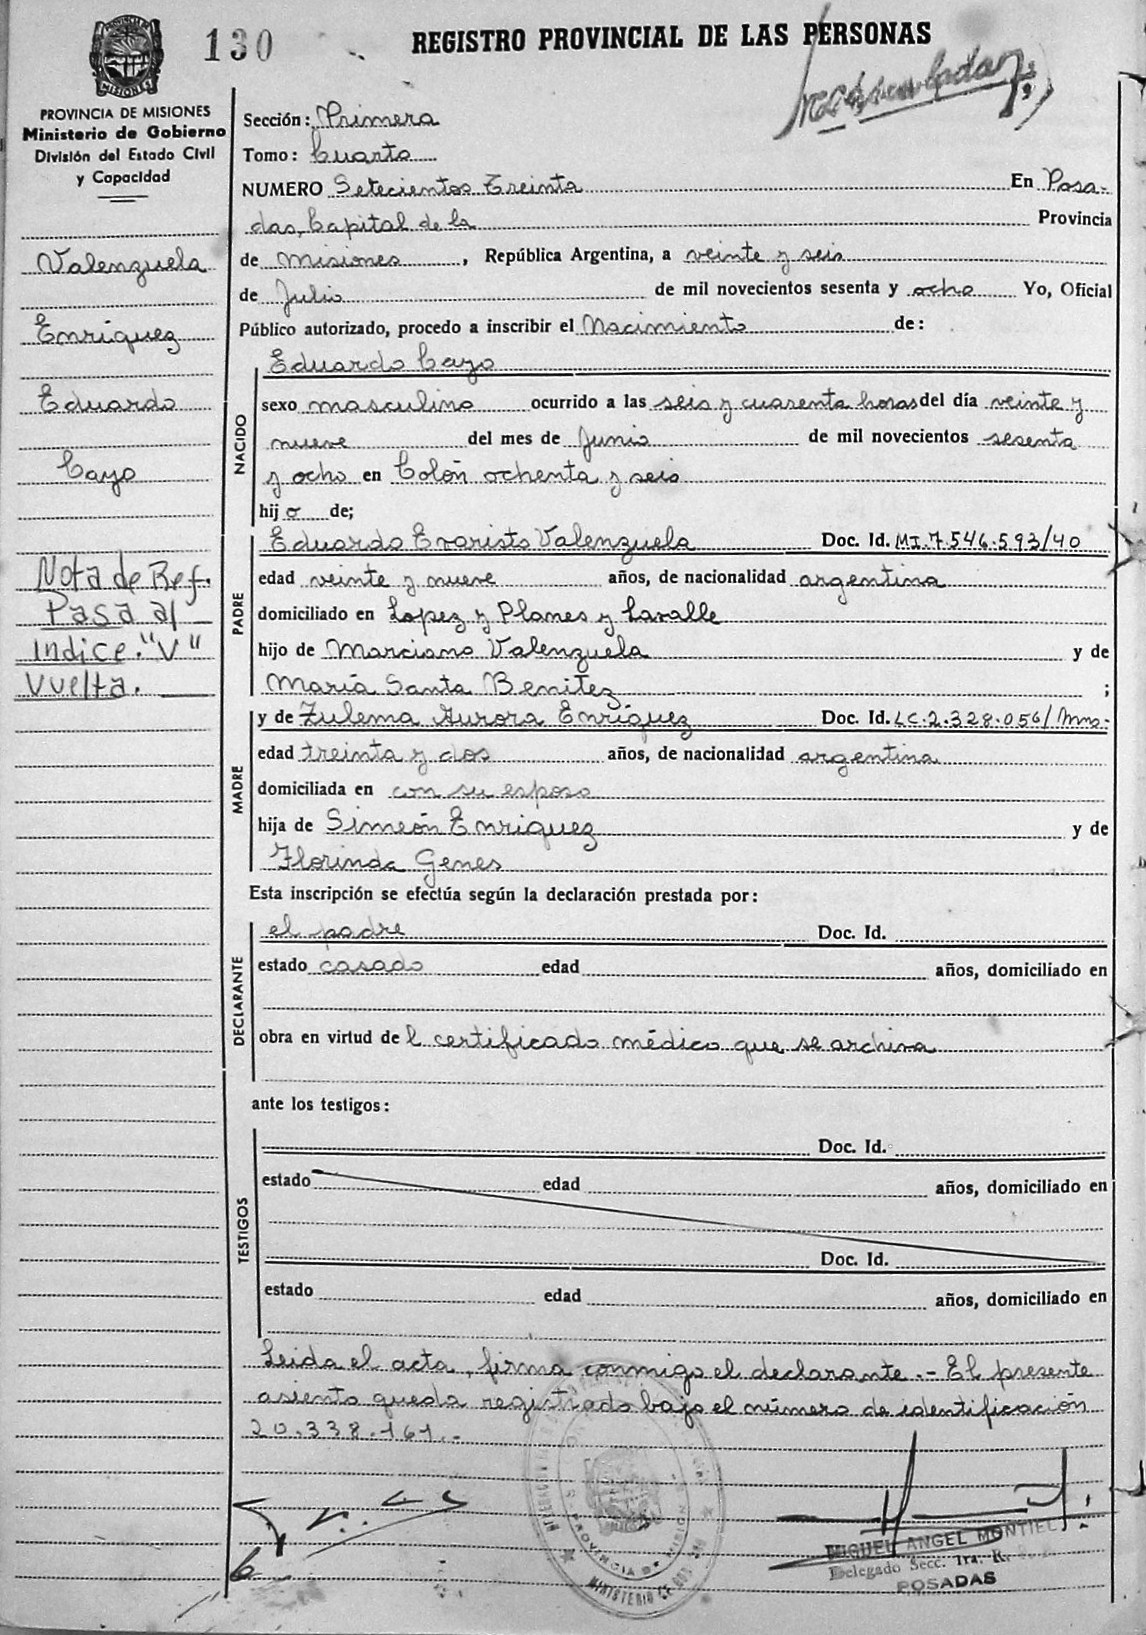 130
REGISTRO PROVINCIAL DE LAS PERSONAS
PROVINCIA DE MISIONES
Ministerio de Gobierno
División del Estado Civil
y Capacidad
Valenzuela
Enriquez
Eduardo
Cayo
Nota de Ref.
Pasa al
Indice "V"
Vuelta.
Sección: Primera
Tomo: Cuarto
NUMERO Setecientos Treinta En Posa-
das, Capital de la Provincia
de Misiones, República Argentina, a veinte y seis
de Julio de mil novecientos sesenta y ocho Yo, Oficial
Público autorizado, procedo a inscribir el Nacimiento de:
NACIDO
Eduardo Cayo
sexo masculino ocurrido a las seis y cuarenta horas del día veinte y
nueve del mes de Junio de mil novecientos sesenta
y ocho en Colón ochenta y seis
hijo de;
PADRE
Eduardo Evaristo Valenzuela Doc. Id. MI.7.546.593/40
edad veinte y nueve años, de nacionalidad argentina
domiciliado en Lopez y Planes y Lavalle
hijo de Marciano Valenzuela y de
María Santa Benitez ;
MADRE
y de Zulema Aurora Enriquez Doc. Id. LC.2.328.056/Mns.
edad treinta y dos años, de nacionalidad argentina
domiciliada en con su esposo
hija de Simeón Enriquez y de
Florinda Genes
Esta inscripción se efectúa según la declaración prestada por:
DECLARANTE
el padre Doc. Id.
estado casado edad años, domiciliado en
obra en virtud del certificado médico que se archiva
ante los testigos:
TESTIGOS
Doc. Id.
estado edad años, domiciliado en
Doc. Id.
estado edad años, domiciliado en
Leida el acta, firma conmigo el declarante.- El presente
asiento queda registrado bajo el número de identificación
20.338.161.-
MIGUEL ANGEL MONTIEL
Delegado Secc. 1ra. R.
POSADAS